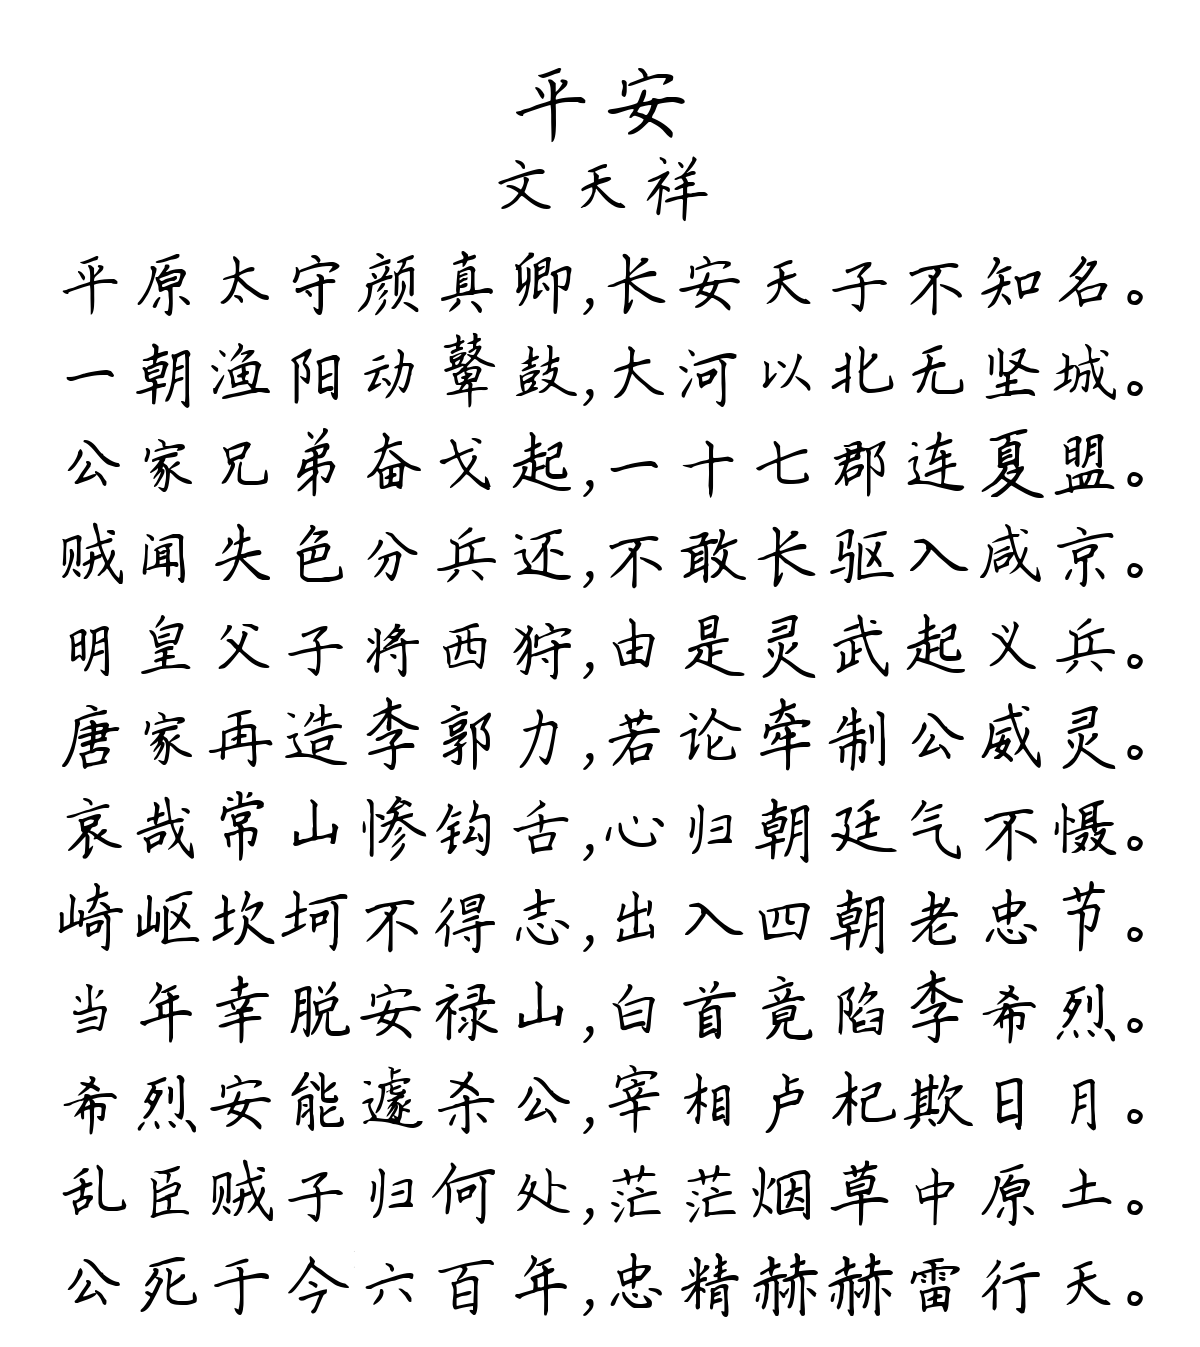 平安
文天祥
平原太守颜真卿,长安天子不知名。
一朝渔阳动鼙鼓,大河以北无坚城。
公家兄弟奋戈起,一十七郡连夏盟。
贼闻失色分兵还,不敢长驱入咸京。
明皇父子将西狩,由是灵武起义兵。
唐家再造李郭力,若论牵制公威灵。
哀哉常山惨钩舌,心归朝廷气不慑。
崎岖坎坷不得志,出入四朝老忠节。
当年幸脱安禄山,白首竟陷李希烈。
希烈安能遽杀公,宰相卢杞欺日月。
乱臣贼子归何处,茫茫烟草中原土。
公死于今六百年,忠精赫赫雷行天。